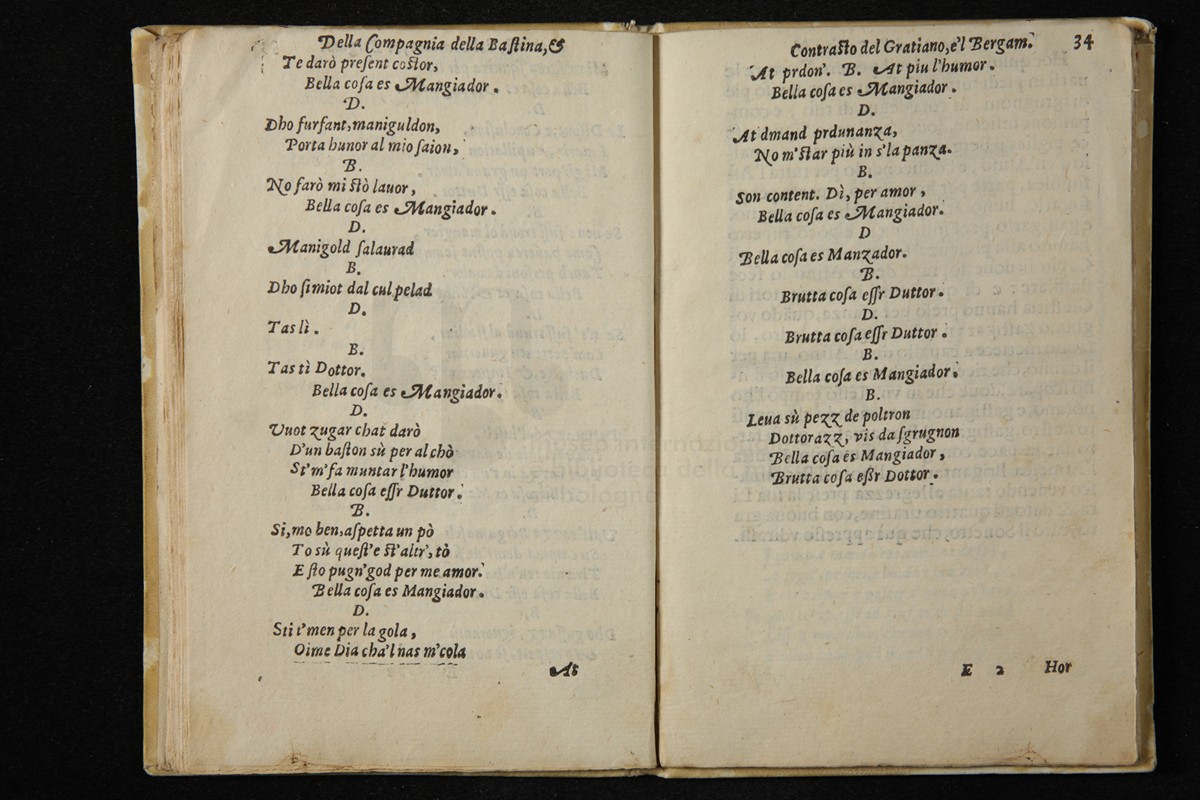 Della Compagnia della Baſtina, &
Te darò preſent coſtor,
Bella coſa es Mangiador.
D.
Dho furfant, maniguldon,
Porta hunor al mio ſaion,
B.
No farò mi ſtò lauor,
Bella coſa es Mangiador.
D.
Manigold ſalaurad
B.
Dho ſimiot dal cul pelad
D.
Tas lì.
B.
Tas tì Dottor.
Bella coſa es Mangiador.
D.
Vuot zugar chat darò
D'un baſton sù per al chò
St'm'fa muntar l'humor
Bella coſa eſſr Duttor.
B.
Si, mo ben, aſpetta un pò
To sù queſt'e ſt'altr', tò
E ſto pugn'god per me amor.
Bella coſa es Mangiador.
D.
Sti t'men per la gola,
Oime Dia cha'l nas m'cola
At
Contraſto del Gratiano, e'l Bergam. 34
At prdon'. B. At piu l'humor.
Bella coſa es Mangiador.
D.
At dmand prdunanza,
No m'ſtar più in s'la panza.
B.
Son content. Dì, per amor,
Bella coſa es Mangiador.
D
Bella coſa es Manzador.
B.
Brutta coſa eſſr Duttor.
D.
Brutta coſa eſſr Duttor.
B.
Bella coſa es Mangiador.
B.
Leua sù pezz de poltron
Dottorazz, vis da ſgrugnon
Bella coſa es Mangiador,
Brutta coſa eßr Dottor.
E 2 Hor